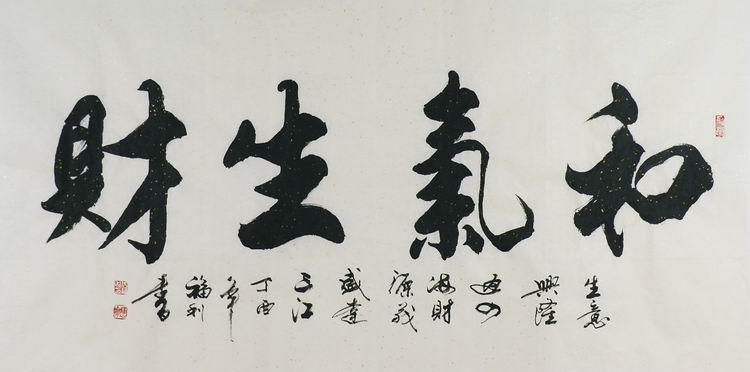 和氣生財
生意
興隆
通四
海財
源茂
盛達
三江
丁酉
年
福利
書